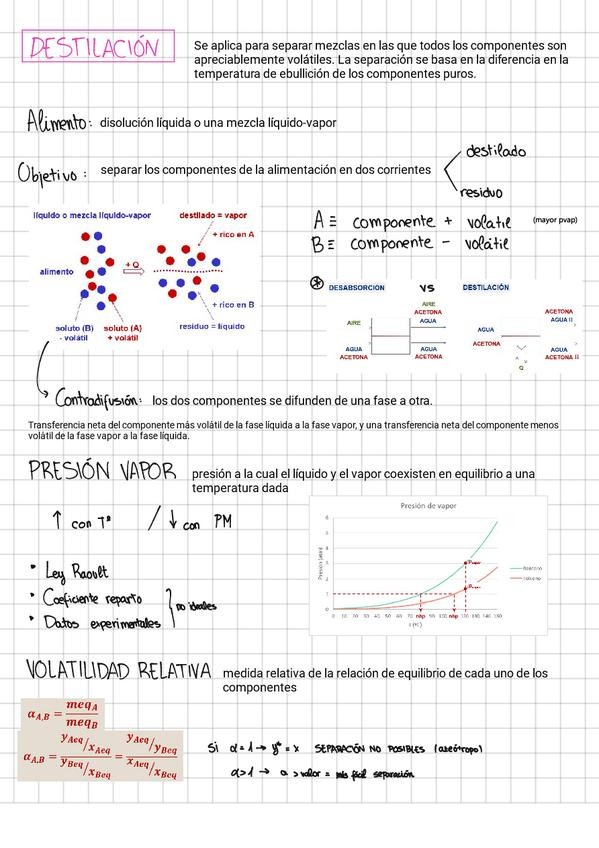 DESTILACIÓN
Se aplica para separar mezclas en las que todos los componentes son
apreciablemente volátiles. La separación se basa en la diferencia en la
temperatura de ebullición de los componentes puros.
Alimento: disolución líquida o una mezcla líquido-vapor
Objetivo: separar los componentes de la alimentación en dos corrientes
destilado
residuo
líquido o mezcla líquido-vapor
destilado = vapor
+ rico en A
alimento
+ Q
+ rico en B
soluto (B)
- volátil
soluto (A)
+ volátil
residuo = líquido
A ≡ componente + volatil (mayor pvap)
B ≡ componente - volátil
DESABSORCION VS DESTILACIÓN
AIRE
ACETONA
AIRE
AGUA
AGUA
ACETONA
AGUA
ACETONA
ACETONA
AGUA II
AGUA
AGUA
ACETONA
Q
AGUA
ACETONA II
Contradifusión: los dos componentes se difunden de una fase a otra.
Transferencia neta del componente más volátil de la fase líquida a la fase vapor, y una transferencia neta del componente menos
volátil de la fase vapor a la fase líquida.
PRESIÓN VAPOR presión a la cual el líquido y el vapor coexisten en equilibrio a una
temperatura dada
↑ con Tª / ↓ con PM
• Ley Raoult
• Coeficiente reparto
• Datos experimentales
no ideales
Presión de vapor
6
5
4
3
2
1
0
0 10 20 30 40 50 60 70 80 90 100 110 120 130 140 150
nbp nbp
Benceno
Tolueno
VOLATILIDAD RELATIVA medida relativa de la relación de equilibrio de cada uno de los
componentes
α A,B = meq A / meq B
α A,B = (y Aeq / x Aeq) / (y Beq / x Beq) = (y Aeq / y Beq) / (x Aeq / x Beq)
Si α=1 → y* = x SEPARACIÓN NO POSIBLES (azeótropo)
α>1 → a > valor = más fácil separación